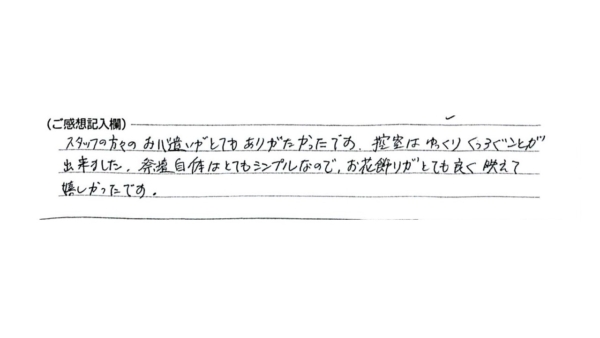 (ご感想記入欄)
スタッフの方々のお心遣いがとてもありがたかったです。控室はゆっくりくつろぐことが
出来ました。祭壇自体はとてもシンプルなので、お花飾りがとても良く映えて
嬉しかったです。